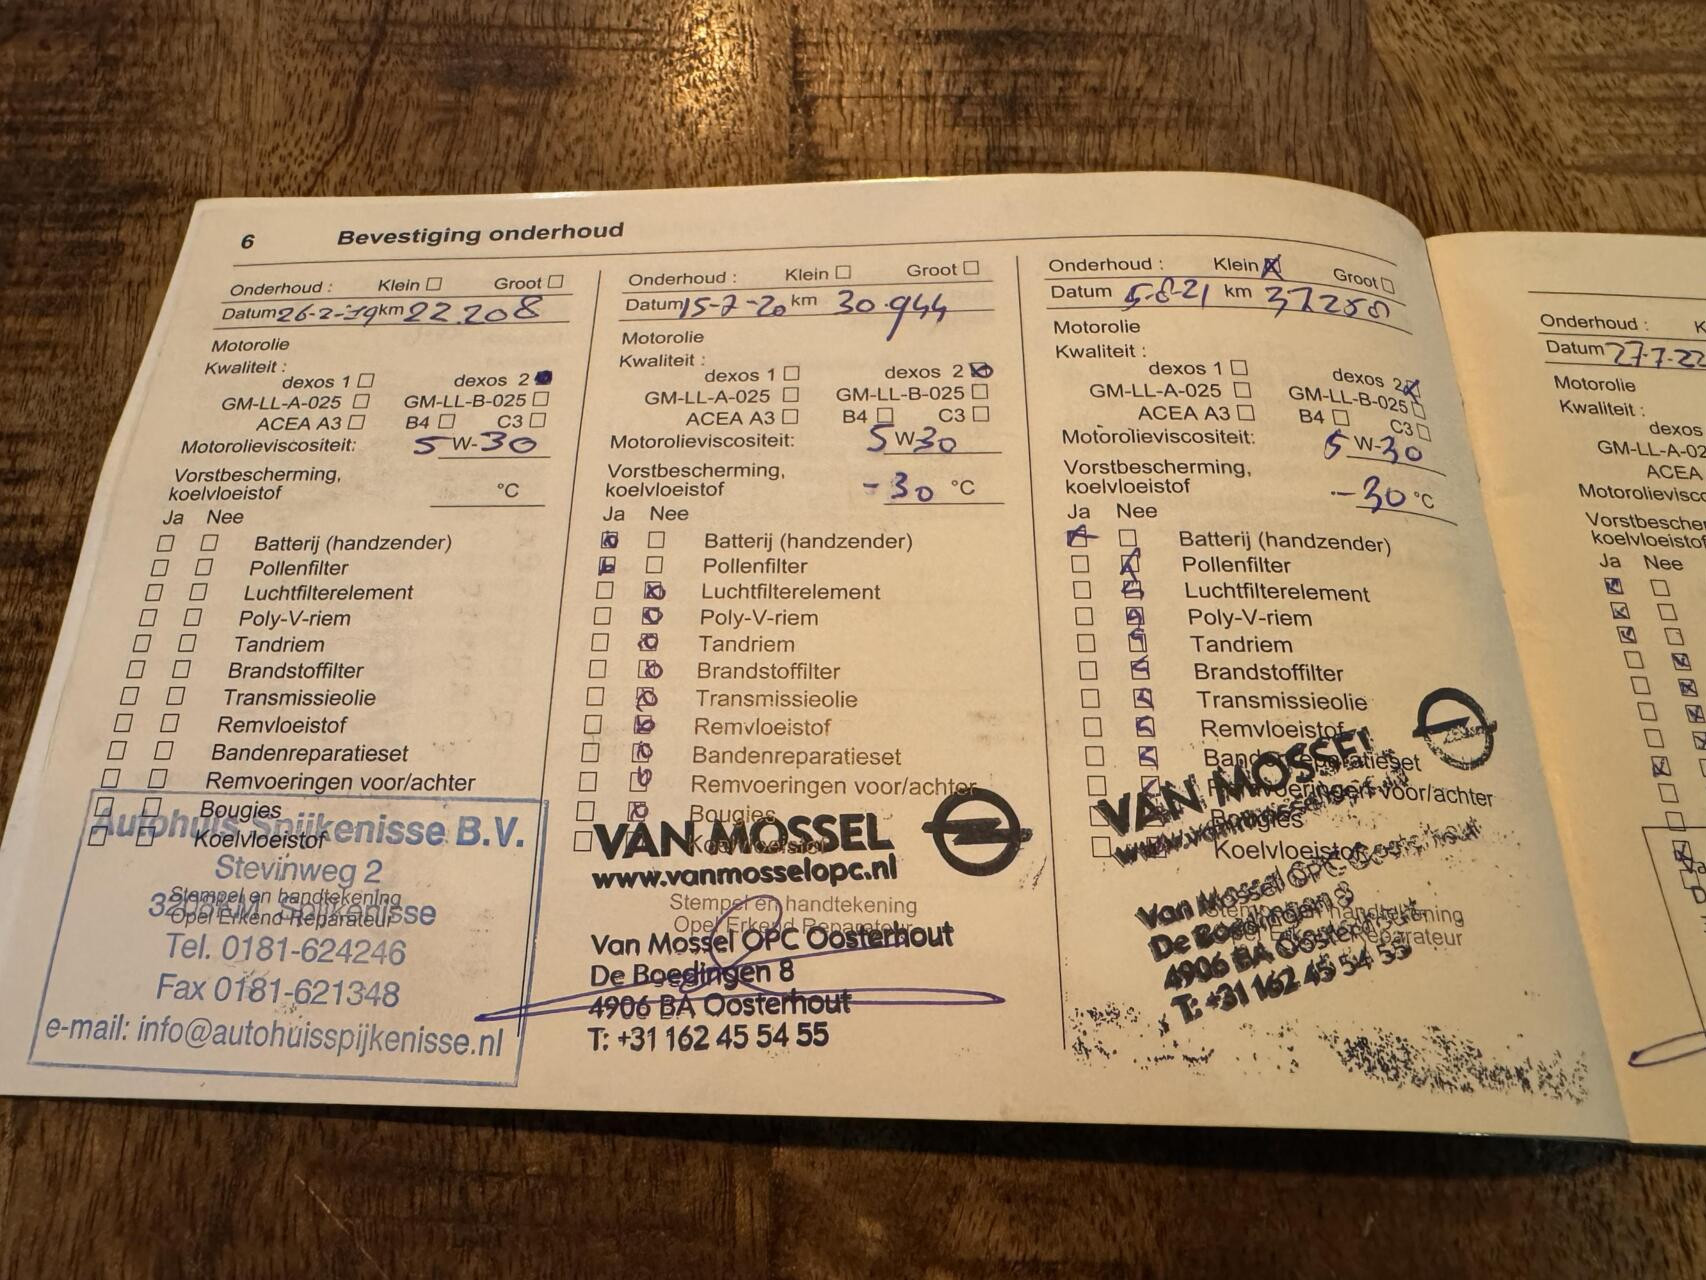 6 Bevestiging onderhoud
Onderhoud : Klein Groot
Datum 26-2-19 km 22.208
Motorolie
Kwaliteit :
dexos 1 dexos 2
GM-LL-A-025 GM-LL-B-025
ACEA A3 B4 C3
Motorolieviscositeit: 5 W-30
Vorstbescherming,
koelvloeistof °C
Ja Nee
Batterij (handzender)
Pollenfilter
Luchtfilterelement
Poly-V-riem
Tandriem
Brandstoffilter
Transmissieolie
Remvloeistof
Bandenreparatieset
Remvoeringen voor/achter
Bougies
Koelvloeistof
Autohuis Spijkenisse B.V.
Stevinweg 2
Stempel en handtekening
Spijkenisse
Opel Erkend Reparateur
Tel. 0181-624246
Fax 0181-621348
e-mail: info@autohuisspijkenisse.nl
Onderhoud : Klein Groot
Datum 15-7-20 km 30.944
Motorolie
Kwaliteit :
dexos 1 dexos 2
GM-LL-A-025 GM-LL-B-025
ACEA A3 B4 C3
Motorolieviscositeit: 5 W-30
Vorstbescherming,
koelvloeistof -30 °C
Ja Nee
Batterij (handzender)
Pollenfilter
Luchtfilterelement
Poly-V-riem
Tandriem
Brandstoffilter
Transmissieolie
Remvloeistof
Bandenreparatieset
Remvoeringen voor/achter
Bougies
Koelvloeistof
VAN MOSSEL
www.vanmosselopc.nl
Stempel en handtekening
Opel Erkend Reparateur
Van Mossel OPC Oosterhout
De Boedingen 8
4906 BA Oosterhout
T: +31 162 45 54 55
Onderhoud : Klein Groot
Datum 5-8-21 km
Motorolie
Kwaliteit :
dexos 1 dexos 2
GM-LL-A-025 GM-LL-B-025
ACEA A3 B4 C3
Motorolieviscositeit: 5 W-30
Vorstbescherming,
koelvloeistof -30 °C
Ja Nee
Batterij (handzender)
Pollenfilter
Luchtfilterelement
Poly-V-riem
Tandriem
Brandstoffilter
Transmissieolie
Remvloeistof
Bandenreparatieset
Remvoeringen voor/achter
Bougies
Koelvloeistof
VAN MOSSEL
Stempel en handtekening
Opel Erkend Reparateur
Van Mossel OPC Oosterhout
De Boedingen 8
4906 BA Oosterhout
T: +31 162 45 54 55
Onderhoud : K
Datum 27-7-22
Motorolie
Kwaliteit :
dexos
GM-LL-A-02
ACEA
Motorolievisco
Vorstbescher
koelvloeistof
Ja Nee